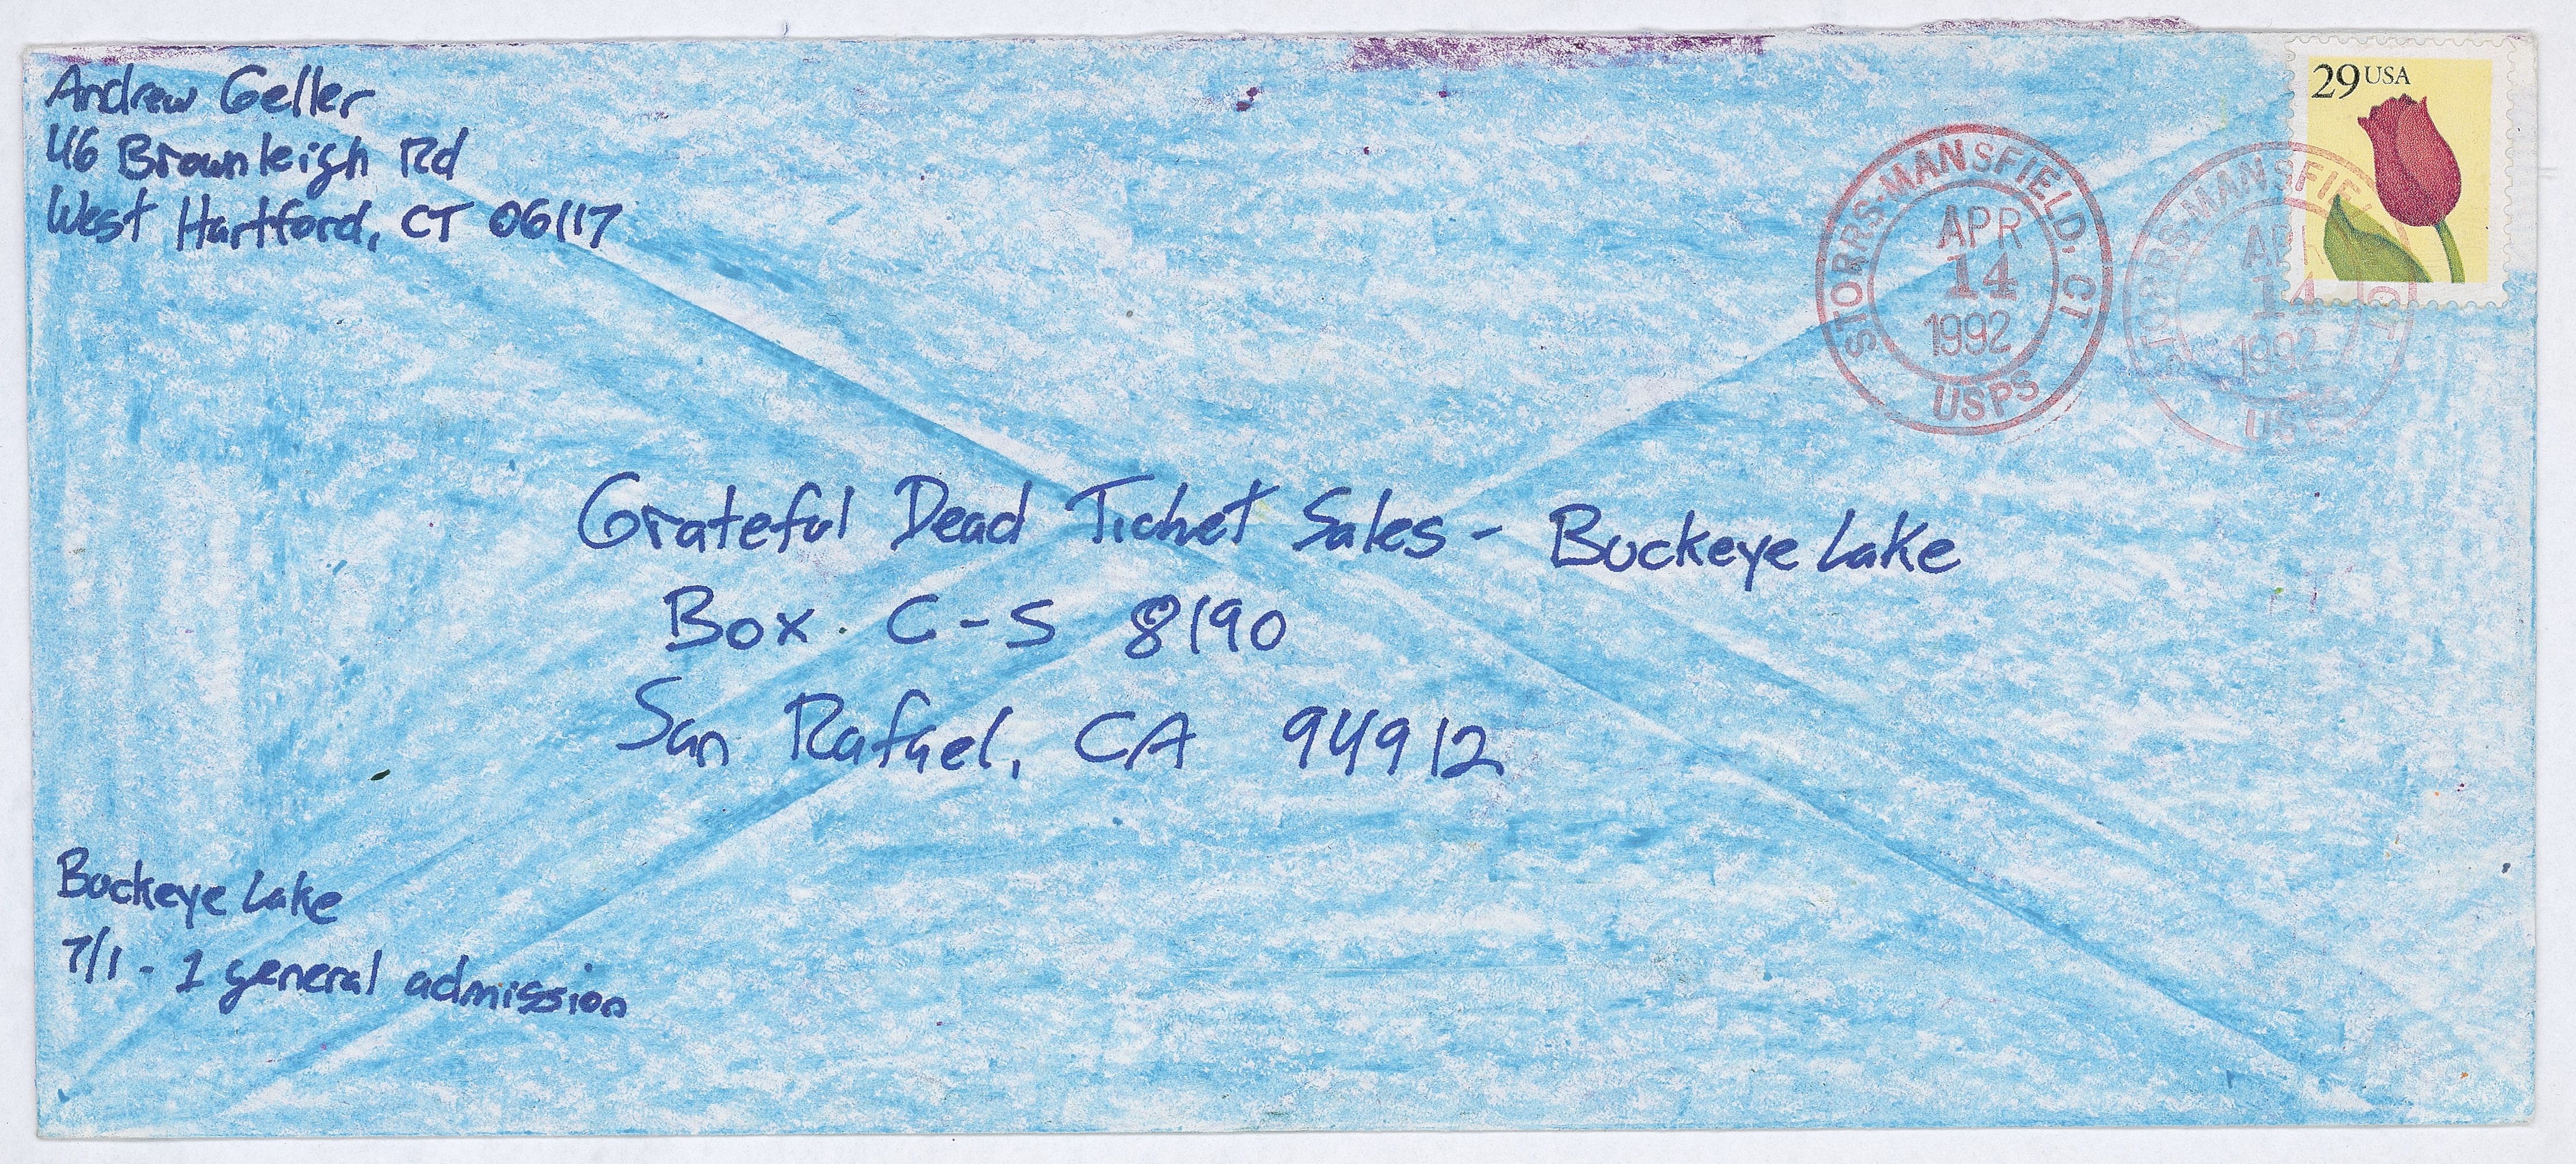 Andrew Geller
46 Brownleigh Rd
West Hartford, CT 06117
29 USA
STORRS-MANSFIELD, CT
APR
14
1992
USPS
STORRS-MANSFIE CT
APR
14
1992
USPS
Grateful Dead Ticket Sales - Buckeye Lake
Box C-S 8190
San Rafael, CA 94912
Buckeye Lake
7/1 - 1 general admission